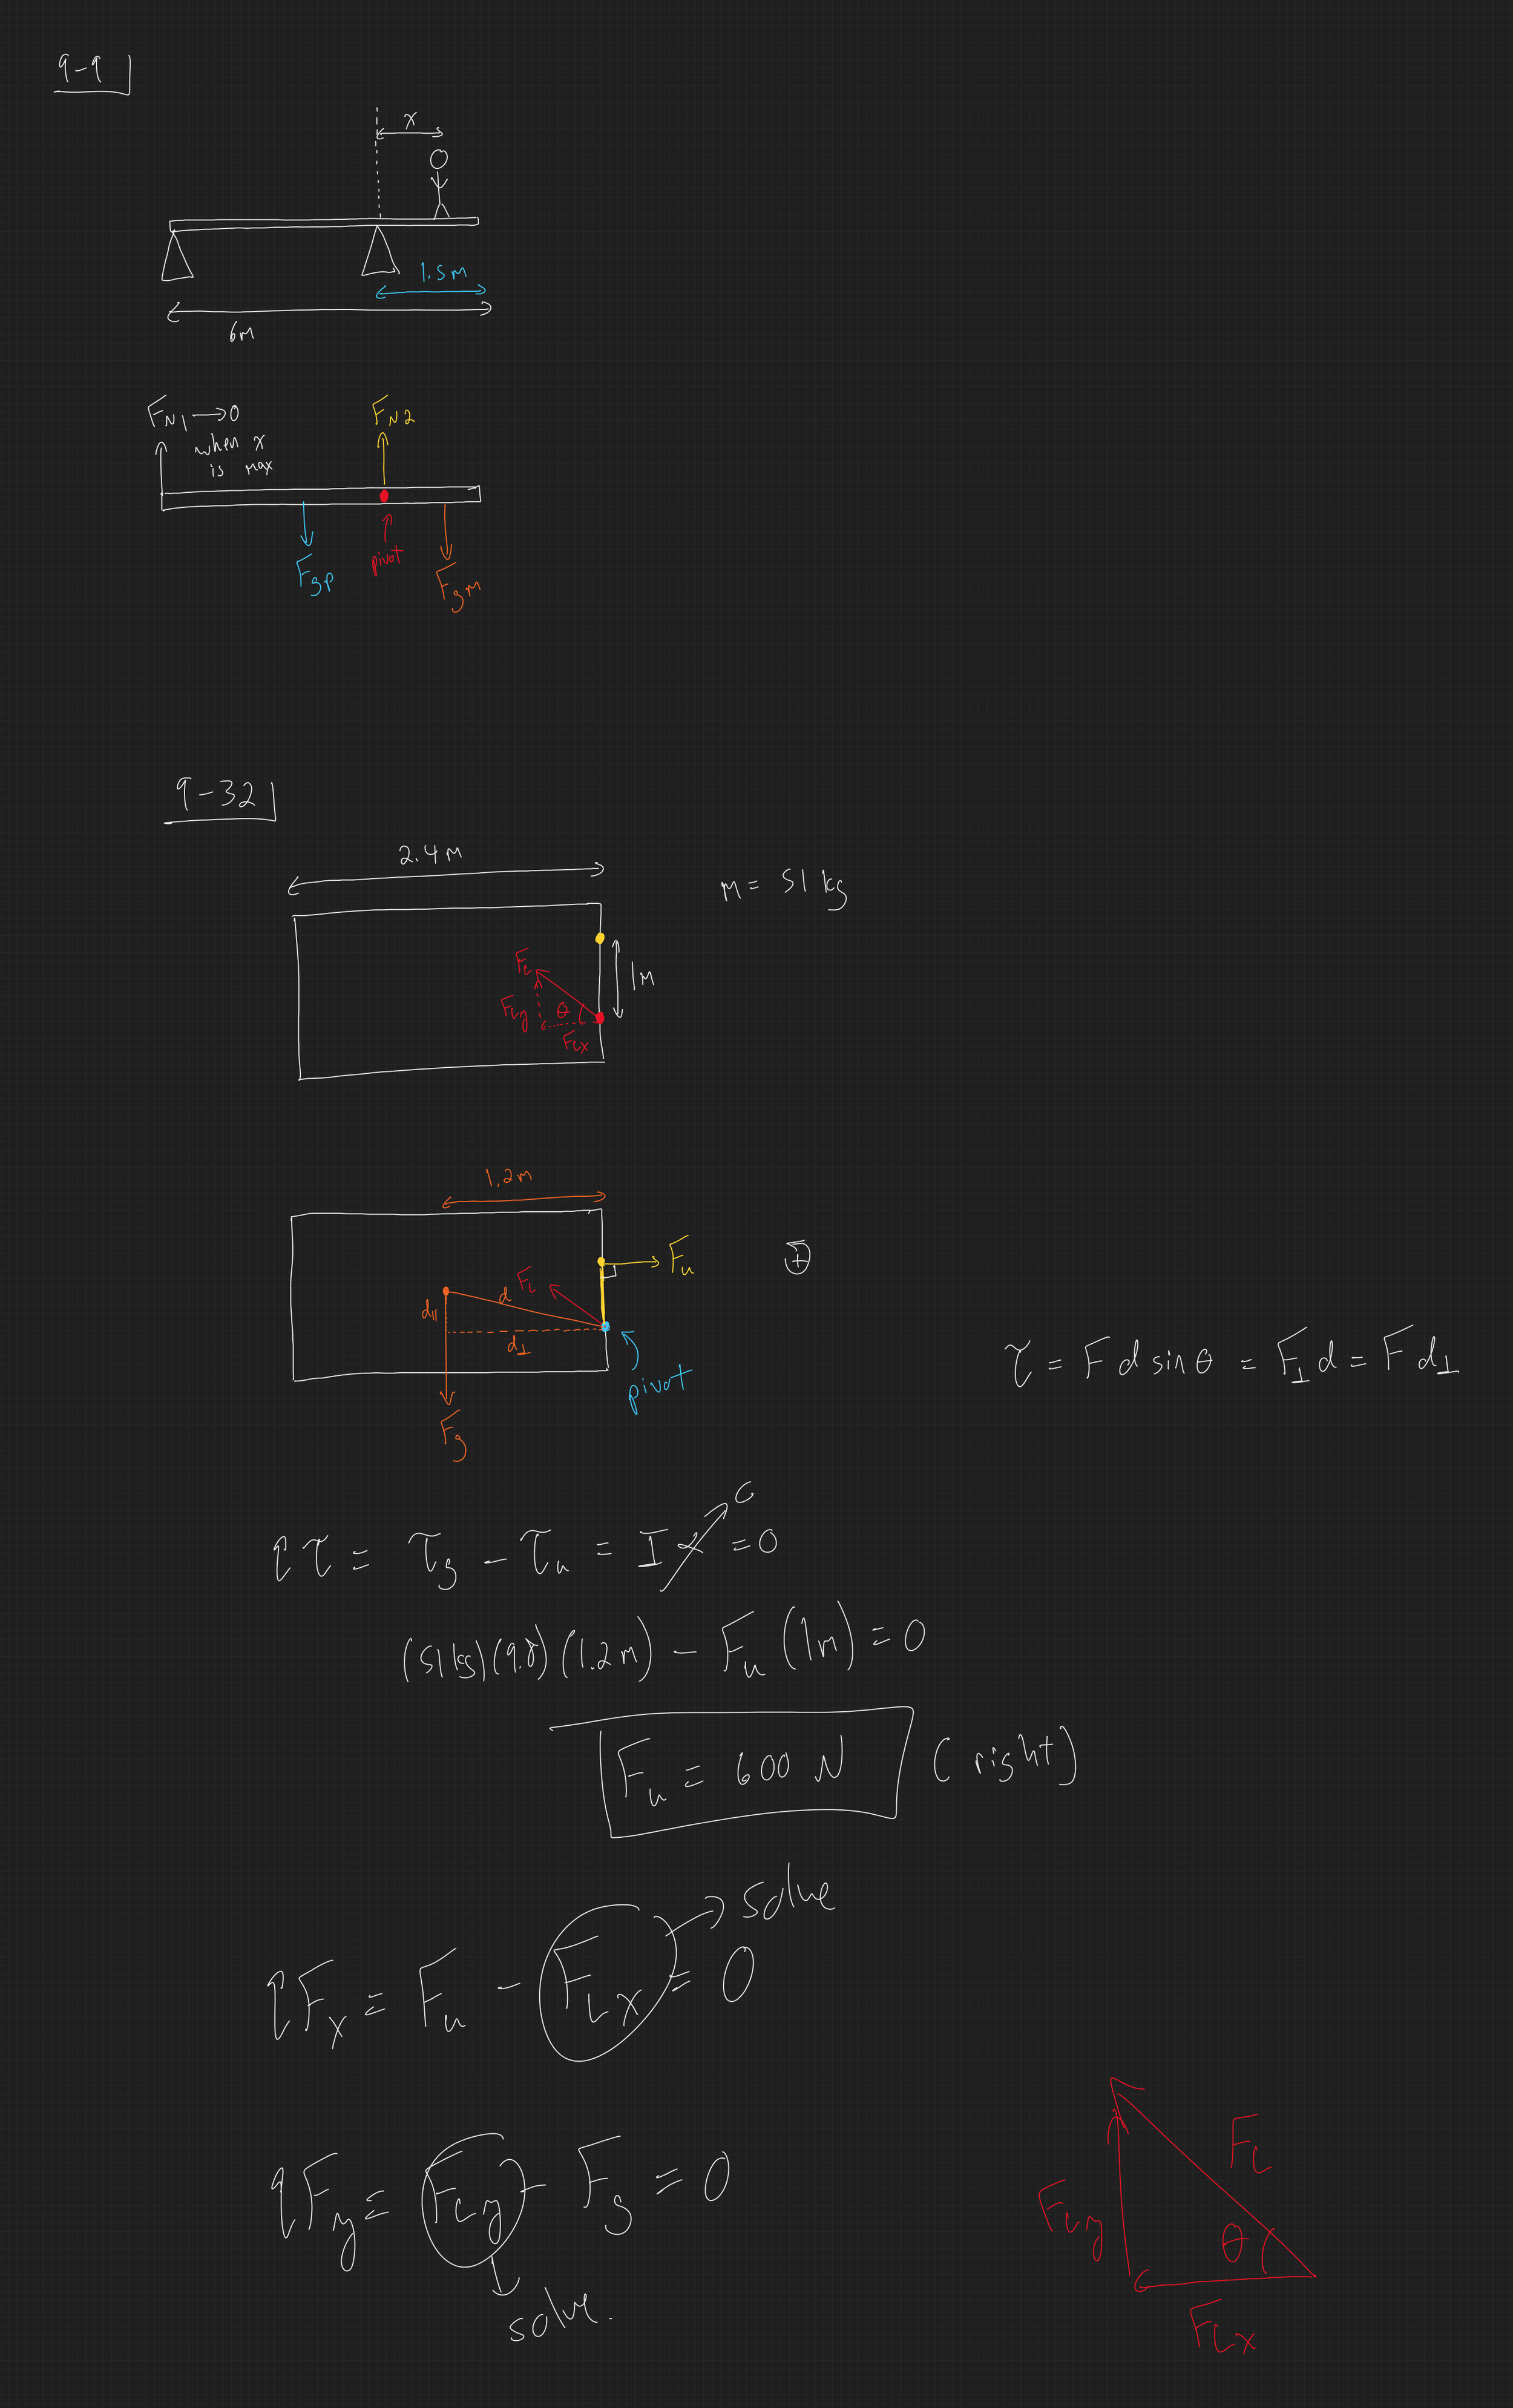 9-9
x
1.5m
6m
F_N1 → 0
when x
is max
F_N2
F_gp
pivot
F_gm
9-32
2.4m
m = 51 kg
1m
F_L
F_Ly
θ
F_Lx
1.2m
F_u
+
F_L
d
d_||
d_⊥
pivot
F_g
τ = F d sin θ = F_⊥ d = F d_⊥
Στ = τ_g - τ_u = Iα = 0
0
(51kg)(9.8)(1.2m) - F_u (1m) = 0
F_u = 600 N (right)
solve
ΣF_x = F_u - F_Lx = 0
ΣF_y = F_Ly - F_g = 0
solve.
F_L
F_Ly
θ
F_Lx